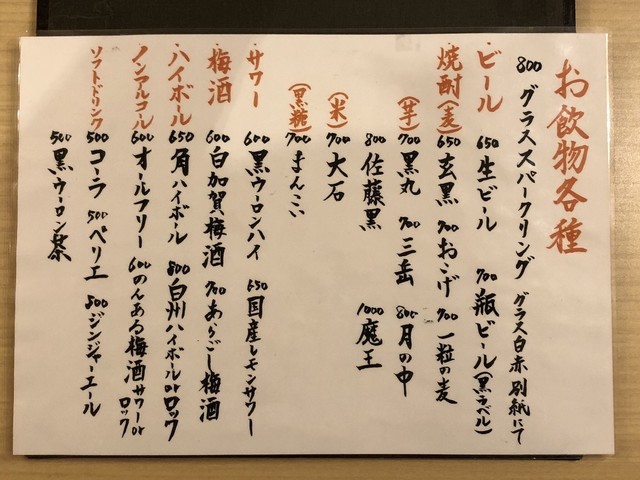 お飲物各種
800 グラススパークリング グラス白赤別紙にて
ビール 650 生ビール 700 瓶ビール(黒ラベル)
焼酎(麦) 650 玄黒 700 おこげ 700 一粒の麦
(芋) 700 黒丸 700 三岳 800 月の中
800 佐藤黒 1000 魔王
(米) 700 大石
(黒糖) 700 まんこい
サワー 600 黒ウーロンハイ 650 国産レモンサワー
梅酒 600 白加賀梅酒 700 あらごし梅酒
ハイボール 650 角ハイボール 800 白州ハイボールorロック
ノンアルコール 600 オールフリー 600 のんある梅酒サワーorロック
ソフトドリンク 500 コーラ 500 ペリエ 500 ジンジャーエール
500 黒ウーロン茶